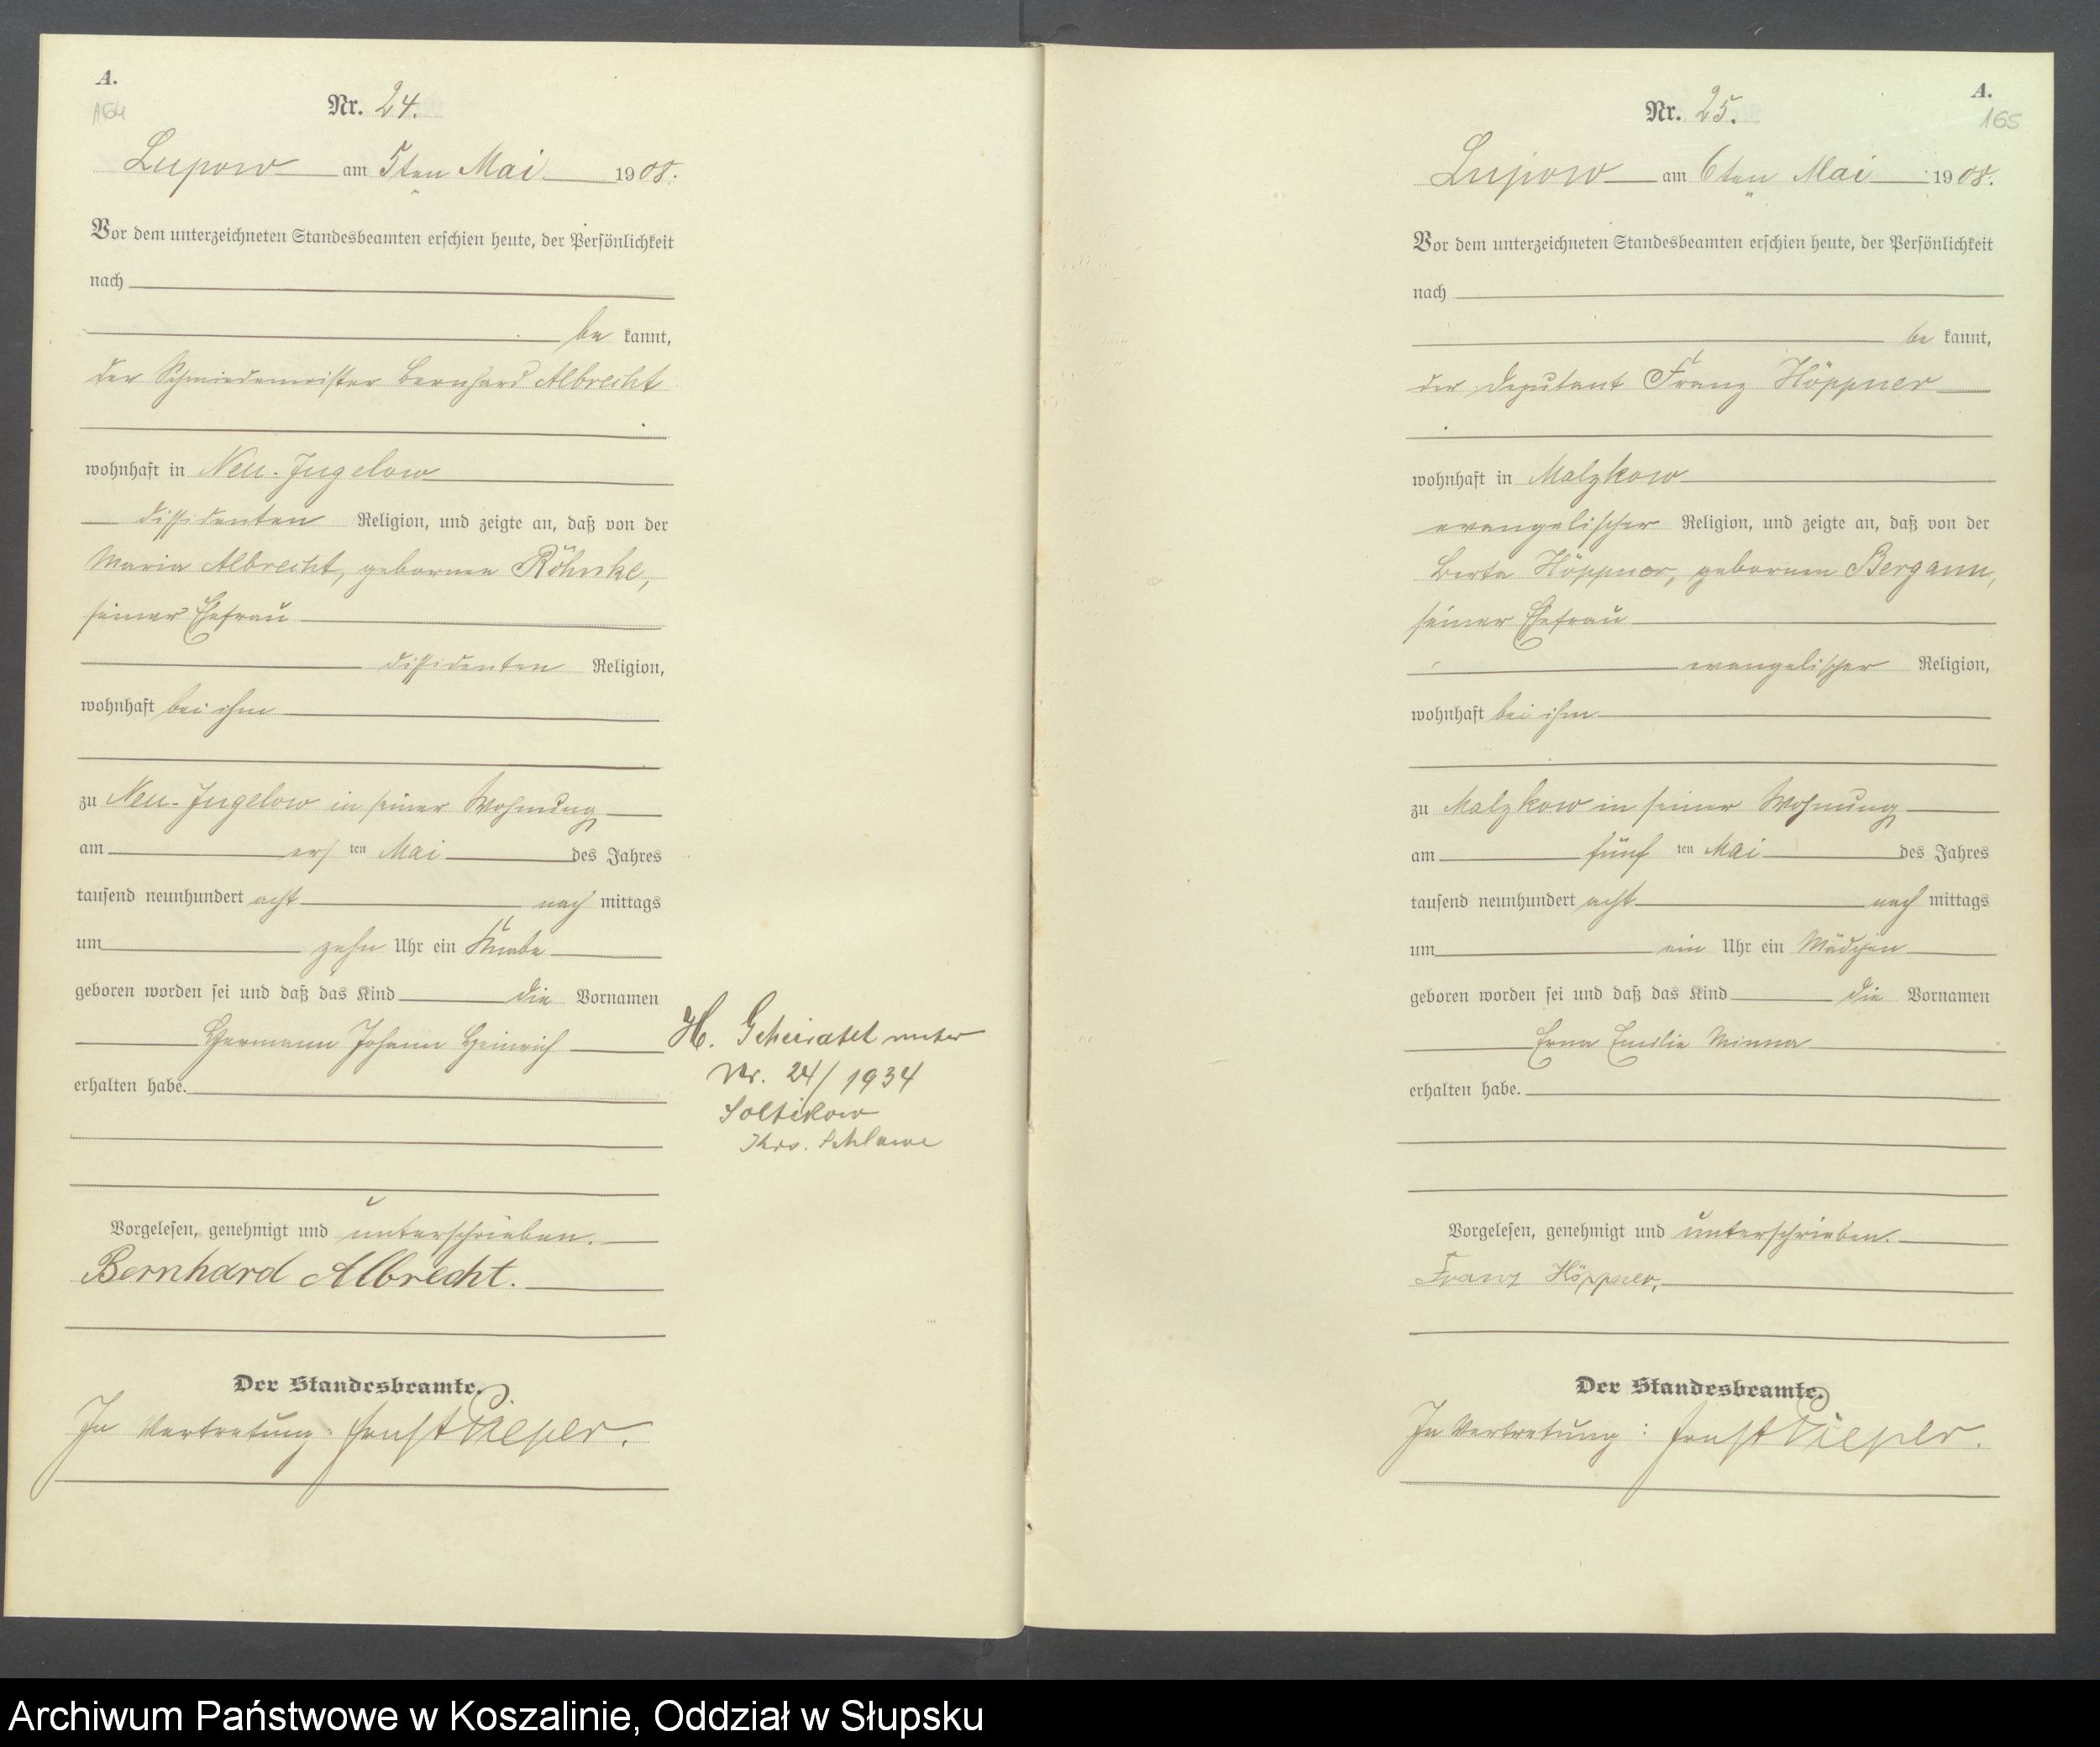 A.
164
Nr. 24.
Lupow am 5ten Mai 1908.
Vor dem unterzeichneten Standesbeamten erschien heute, der Persönlichkeit
nach
be kannt,
der Schmiedemeister Bernhard Albrecht
wohnhaft in Neu-Jugelow
dissidenten Religion, und zeigte an, daß von der
Maria Albrecht, gebornen Röhnke,
seiner Ehefrau
dissidenten Religion,
wohnhaft bei ihm
zu Neu-Jugelow in seiner Wohnung
am ers ten Mai des Jahres
tausend neunhundert acht nach mittags
um zehn Uhr ein Knabe
geboren worden sei und daß das Kind die Vornamen
Hermann Johann Heinrich
erhalten habe.
H. Geheiratet unter
Nr. 24/1934
Soltikow
Krs. Schlawe
Vorgelesen, genehmigt und unterschrieben.
Bernhard Albrecht.
Der Standesbeamte.
In Vertretung: Ernst Pieper.
A.
165
Nr. 25.
Lupow am 6ten Mai 1908.
Vor dem unterzeichneten Standesbeamten erschien heute, der Persönlichkeit
nach
be kannt,
der Deputant Franz Höppner
wohnhaft in Malzkow
evangelischer Religion, und zeigte an, daß von der
Berta Höppner, gebornen Bergann,
seiner Ehefrau
evangelischer Religion,
wohnhaft bei ihm
zu Malzkow in seiner Wohnung
am fünf ten Mai des Jahres
tausend neunhundert acht nach mittags
um ein Uhr ein Mädchen
geboren worden sei und daß das Kind die Vornamen
Erna Emilie Minna
erhalten habe.
Vorgelesen, genehmigt und unterschrieben.
Franz Höppner.
Der Standesbeamte.
In Vertretung: Ernst Pieper.
Archiwum Państwowe w Koszalinie, Oddział w Słupsku